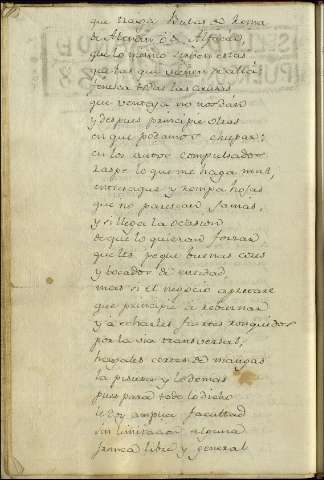 que traiga Bulas de Roma
de Aleman ó de
que lo mismo
que las que vienen de allá;
fenesca todas las causas
que ventaja no nos dan
y despues principie otras
en que podamos chupar;
en los autos compulsados
raspe lo que me haga mal,
entresaque y rompa hojas
que no parescan jamas,
y si llega la ocasion
de que lo quieran
que les pegue buenas coces
y bocados de
mas si el negocio apretare
que principie á rebuznar
y á echarles fuertes ronquidos
por la via transversal,
hagales cortes de mangas
la y lo demas
pues para todo lo dicho
le doy amplia facultad
sin limitacion alguna
franca libre y general